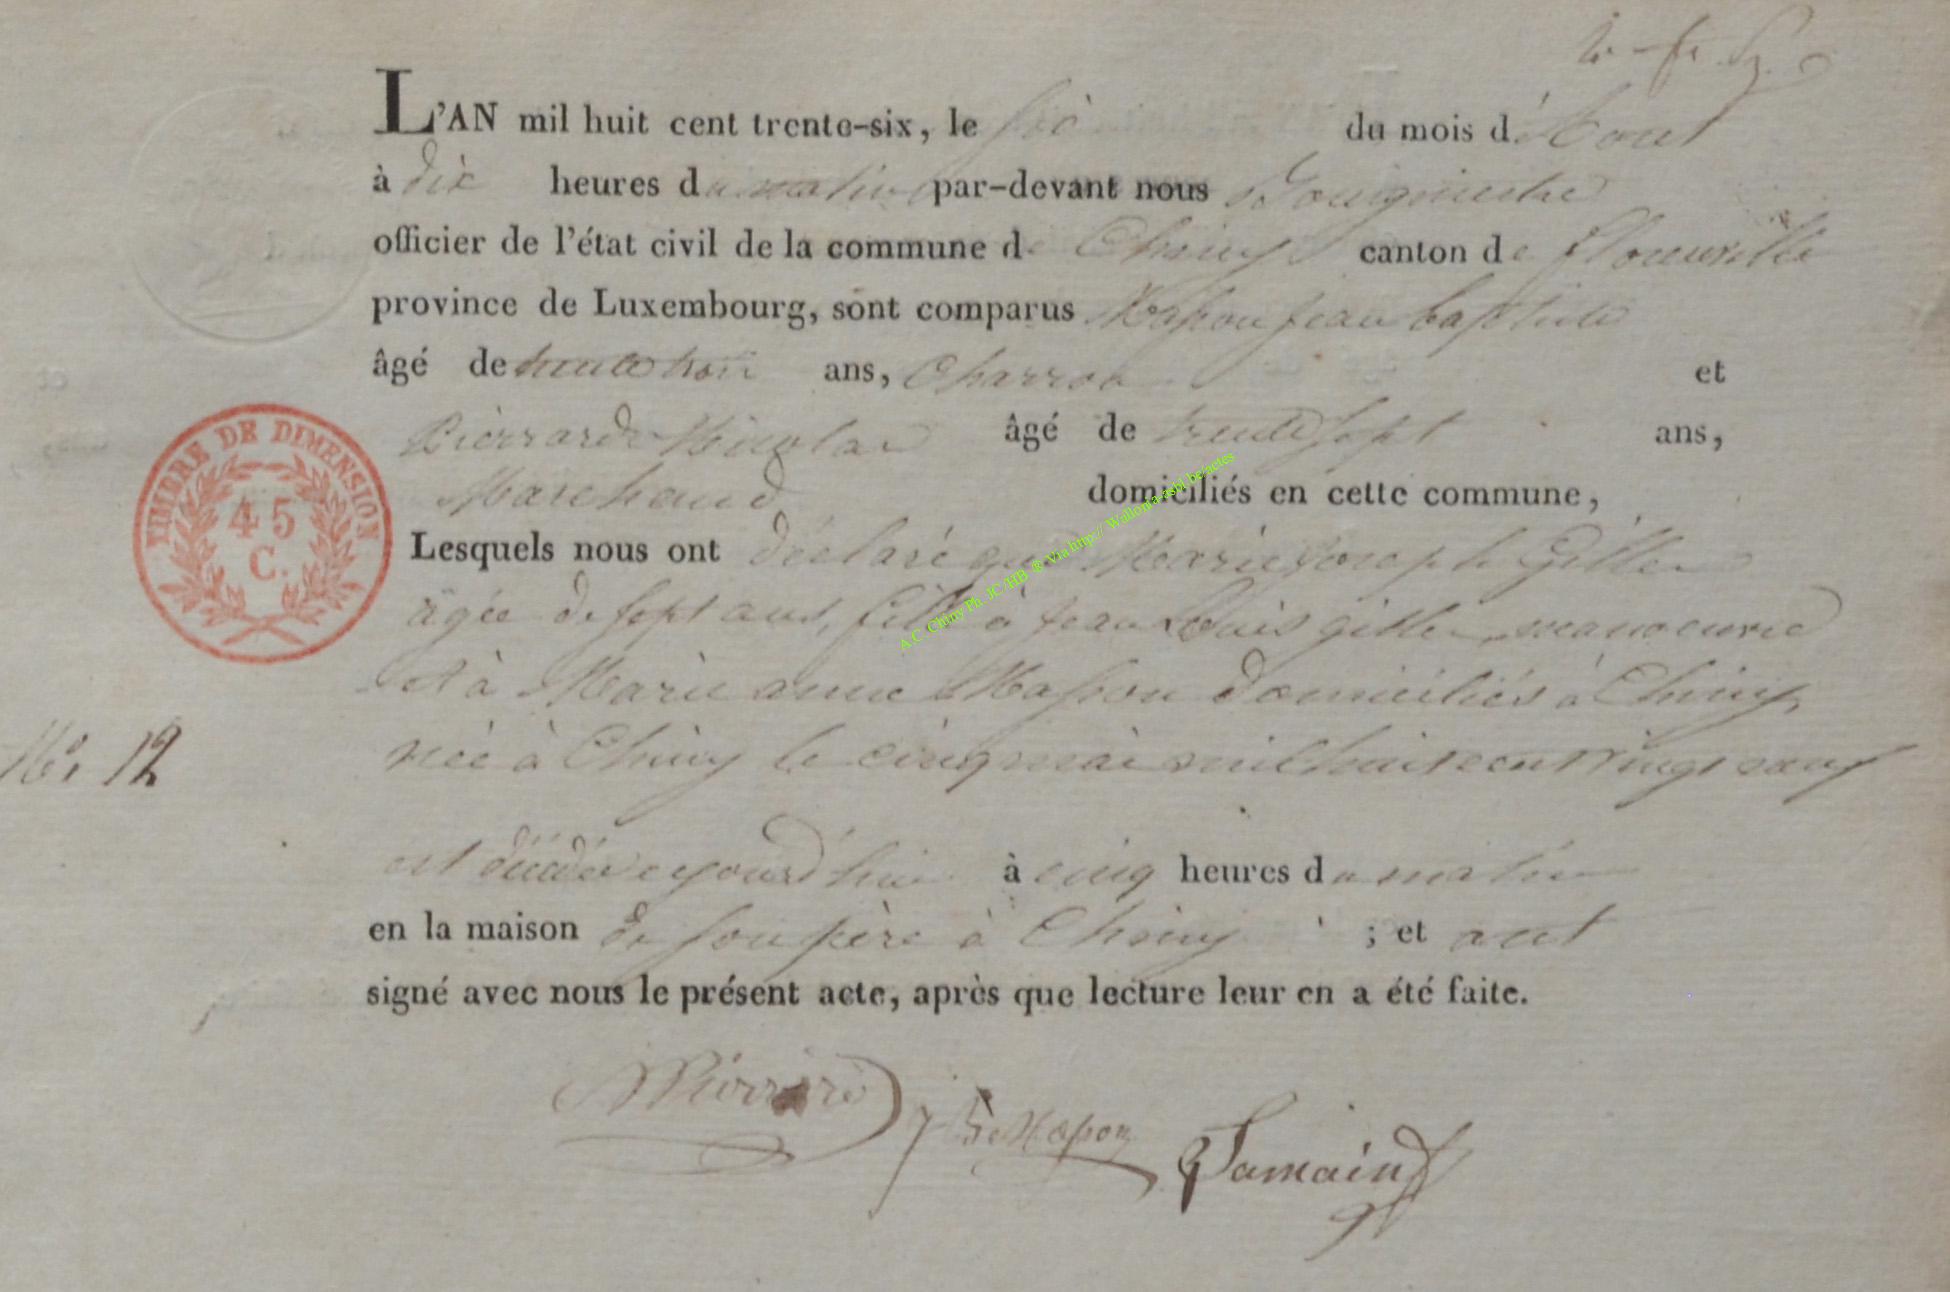 L'AN mil huit cent trente-six, le six du mois d'Aout
à dix heures du matin par-devant nous Bourgmestre
officier de l'état civil de la commune de Chiny canton de Florenville
province de Luxembourg, sont comparus Masson jean baptiste
âgé de trente trois ans, Charron et
Pierrard Nicolas âgé de trente sept ans,
Marchand domiciliés en cette commune,
Lesquels nous ont déclaré que Marie Joseph Gilles
âgée de sept ans, fille à jean Louis gilles manoeuvre
et à Marie anne Masson domiciliés à Chiny,
née à Chiny le cinq mai mil huit cent vingt neuf
est décédée cejourd'hui à cinq heures du matin
en la maison de son père à Chiny ; et ont
signé avec nous le présent acte, après que lecture leur en a été faite.
TIMBRE DE DIMENSION
45
C.
No. 12
A.C. Chiny Ph. JC/HB ® Via http:// Wallonia-asbl.be/actes
NPierrard
JBte Masson
Jamain